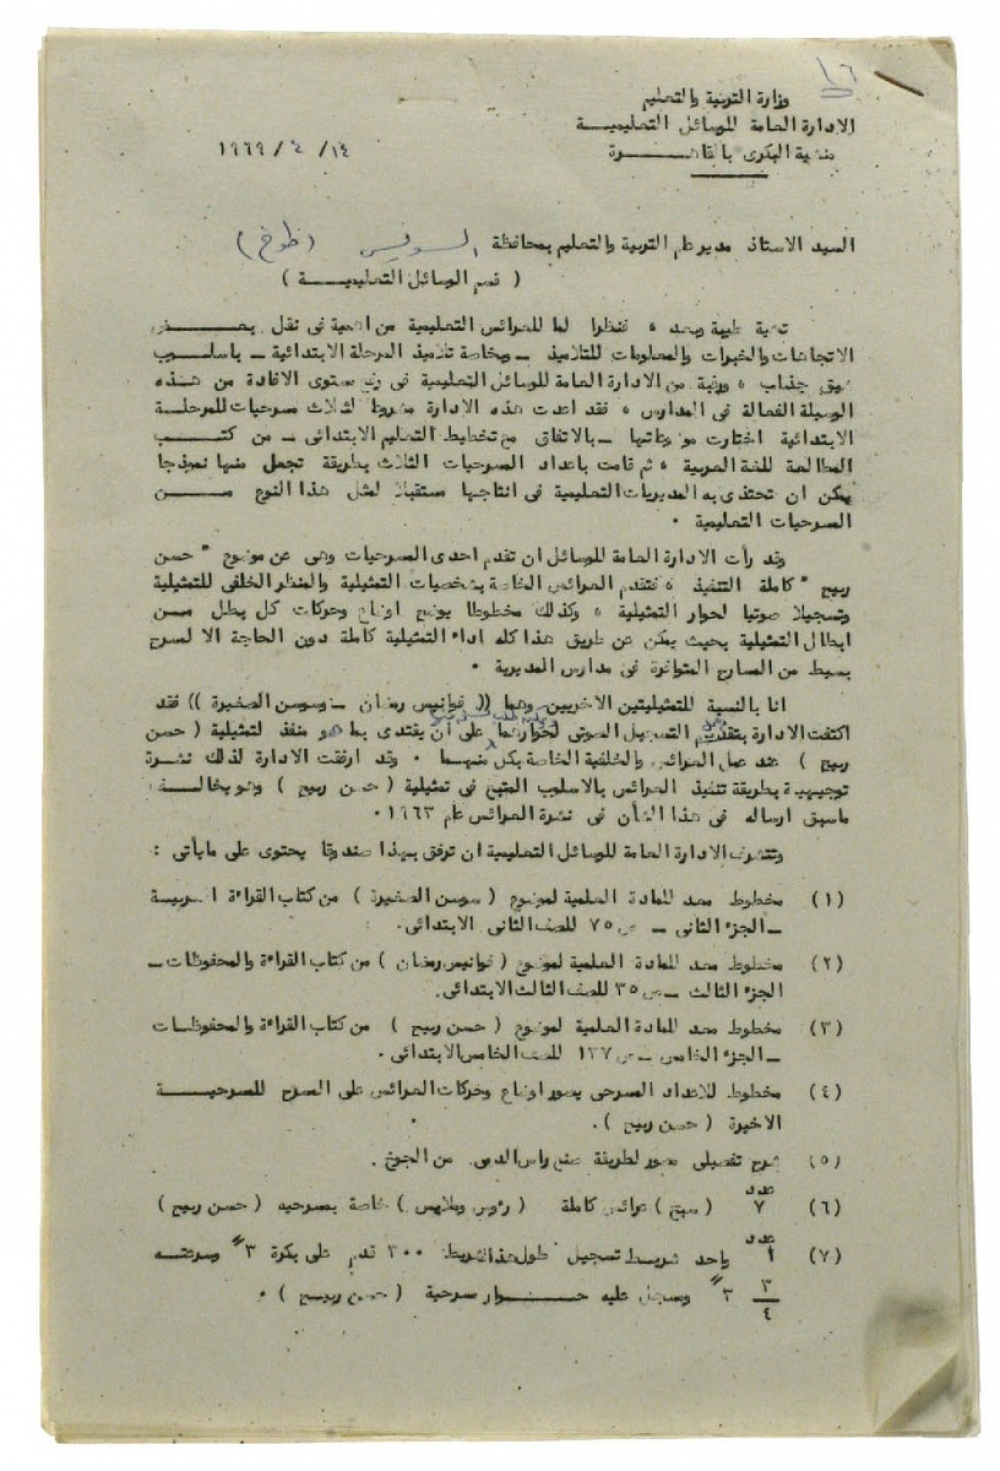 ١٦
وزارة التربية والتعليم
الادارة العامة للوسائل التعليميـــة
منشية البكرى بالقاهـــــرة
١٤/ ٤ / ١٩٦٩
السيد الاستاذ مدير عام التربية والتعليم بمحافظة السويس (طوخ)
( قسم الوسائل التعليميـــــة )
تحية طيبة وبعد ، فنظرا لما للعرائس التعليمية من اهمية فى نقل بعـــــض
الاتجاهات والخبرات والمعلومات للتلاميذ ــ وبخاصة تلاميذ المرحلة الابتدائية ــ باسلـــوب
شيق جذاب ، ورغبة من الادارة العامة للوسائل التعليمية فى رفع مستوى الافادة من هـــذه
الوسيلة الفعالة فى المدارس ، فقد اعدت هذه الادارة مشروط لثلاث مسرحيات للمرحلــة
الابتدائية اختارت موضوعاتها ــ بالاتفاق مع تخطيط التعليم الابتدائى ــ من كتـــــب
المطالعة للغة العربية ، ثم قامت باعداد المسرحيات الثلاث بطريقة تجعل منها نموذجا
يمكن ان تحتذى به المديريات التعليمية فى انتاجها مستقبلا لمثل هذا النوع مـــــن
المسرحيات التعليمية .
وقد رأت الادارة العامة للوسائل ان تقدم احدى المسرحيات وهى عن موضوع " حسن
ربيع " كاملة التنفيذ ، فتقدم العرائس الخاصة بشخصيات التمثيلية والمنظر الخلفى للتمثيلية
وتسجيلا صوتيا لحوار التمثيلية ، وكذلك مخطوطا يوضح اوضاع وحركات كل بطل مـــن
ابطال التمثيلية بحيث يمكن عن طريق هذا كله اداء التمثيلية كاملة دون الحاجة الا لمسرح
بسيط من المسارح المتوافرة فى مدارس المديرية .
اما بالنسبة للتمثيليتين الاخريين وهما (( فوانيس رمضان ــ وسوسن الصغيرة )) فقد
اكتفت الادارة بتقديم التسجيل الصوتى لحوارهما على ان يقتدى بما هو منفذ لتمثيلية ( حسن
ربيع ) عند عمل العرائس والخلفية الخاصة بكل منهمـا . وقد ارفقت الادارة لذلك نشــرة
توجيهية بطريقة تنفيذ العرائس بالاسلوب المتبع فى تمثيلية ( حسن ربيع ) وهو يخالـــف
ماسبق ارساله فى هذا الشأن فى نشرة العرائس عام ١٩٦٣.
وتتشرف الادارة العامة للوسائل التعليمية ان ترفق بهذا صندوقا يحتوى على مايأتى :
(١) مخطوط معد للمادة العلمية لموضوع ( سوسن الصغيرة ) من كتاب القراءة العربيــة
ــ الجزء الثانى ــ ص ٧٥ للصف الثانى الابتدائى.
(٢) مخطوط معد للمادة العلمية لموضوع ( فوانيس رمضان ) من كتاب القراءة والمحفوظات ــ
الجزء الثالث ــ ص ٣٥ للصف الثالث الابتدائى.
(٣) مخطوط معد للمادة العلمية لموضوع ( حسن ربيع ) من كتاب القراءة والمحفوظـات
ــ الجزء الخامس ــ ص ١٣٧ للصف الخامس الابتدائى .
(٤) مخطوط للاعداد المسرحى يصور اوضاع وحركات العرائس على المسرح للمسرحيـــــة
الاخيرة ( حسن ربيع ) .
(٥) شرح تفصيلى مصور لطريقة صنع راس الدمى من الجوخ .
(٦) عدد ٧ ( سبع ) عرائس كاملة ( رؤوس وملابس ) خاصة بمسرحيه ( حسن ربيع )
(٧) عدد ١ واحد شريــط تسجيل طول هذا الشريط ٣٠٠ قدم على بكرة ٣" وسرعتــه
٣ ٣/٤" ومسجل عليه حـــــوار مسرحية ( حسن ربيــع ) .